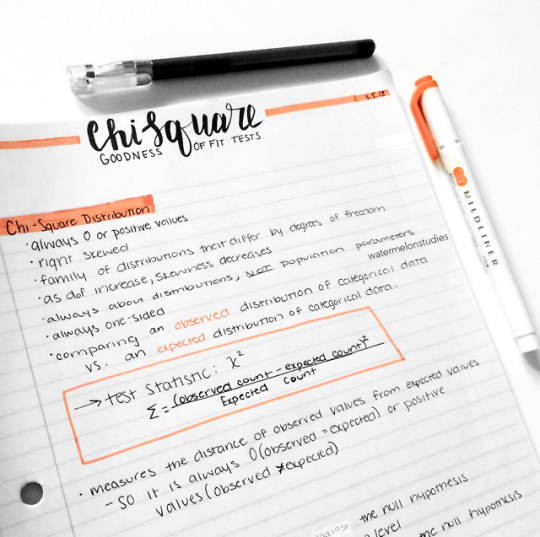 Chi Square
GOODNESS OF FIT TESTS
Chi-Square Distribution
· always 0 or positive values
· right skewed
· family of distributions that differ by degrees of freedom
· as dof increase, skewness decreases
· always about distributions, NOT population parameters
watermelonstudies
· always one-sided
· comparing an observed distribution of categorical data
vs. an expected distribution of categorical data.
→ test statistic: χ²
Σ = (observed count - expected count)²
Expected count
· measures the distance of observed values from expected values
- so it is always 0 (observed = expected) or positive
values (observed ≠ expected)
against the null hypothesis
level
the null hypothesis
MILDLINER